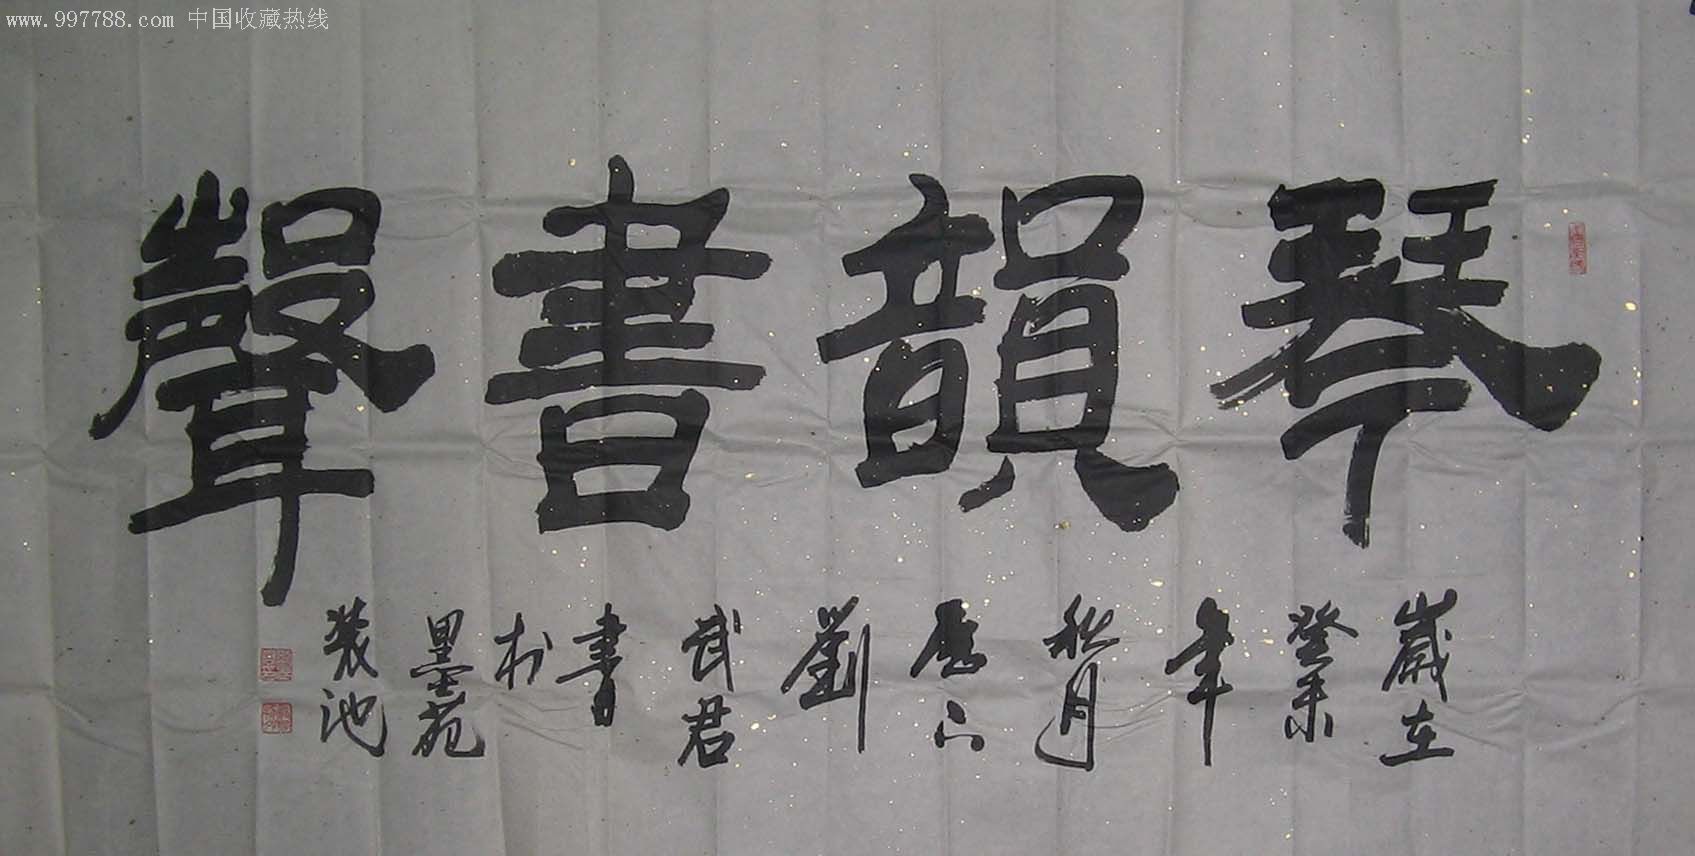 www.997788.com 中国收藏热线
琴韻書聲
歲在癸未年秋月歷下劉武君書於墨苑